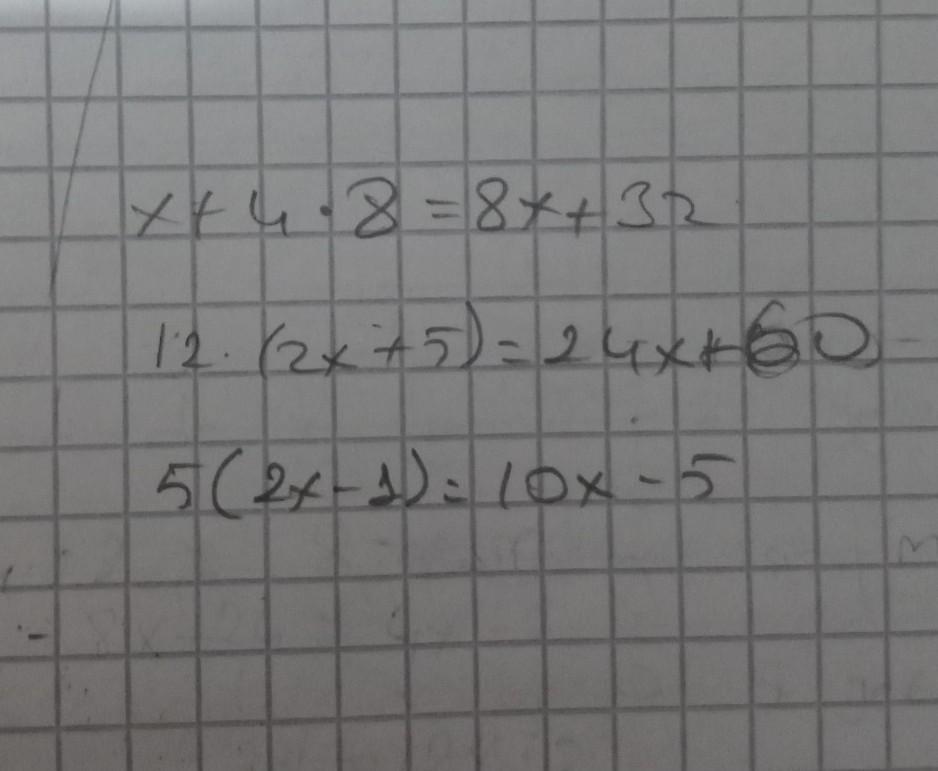 x+4·8=8x+32
12·(2x+5)=24x+60
5(2x-1)=10x-5